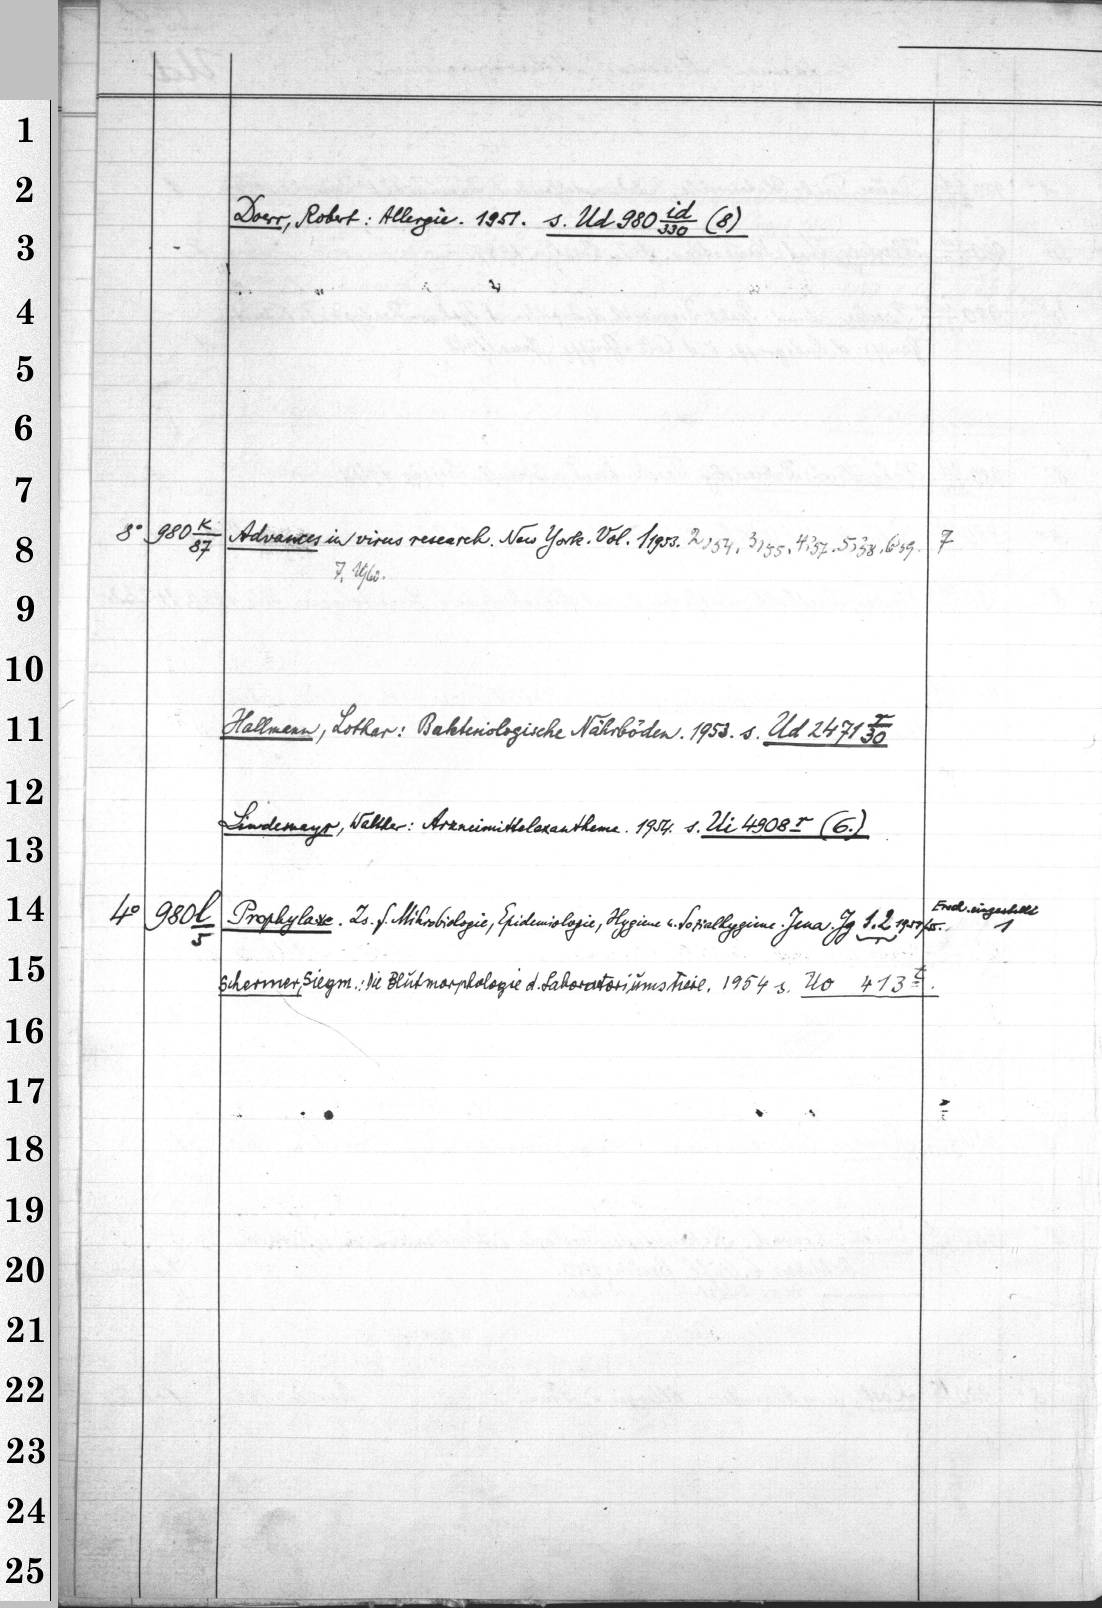 1
2
Doerr, Robert: Allergie. 1951. s. Ud 980 id/330 (8)
3
4
5
6
7
8° 980 K/87 Advances in virus research. New York. Vol. 1, 1953. 2,54. 3,55. 4,57. 5,58. 6,59. 7
8
7,
9
10
Hallmann, Lothar: Bakteriologische Nährböden. 1953. s. Ud 2471 r/30
11
12
Lindemayr, Walther: Arzneimittelexantheme. 1954. s. Ui 4908 r (6.)
13
4° 980 l/5 Prophylaxe. Zs. f. Mikrobiologie, Epidemiologie, Hygiene u. Sozialhygiene. Jena. Jg 1.2 Ersch. eingestellt
14
1
15
Schermer, Siegm.: Die Blutmorphologie d. Laboratoriumstiere. 1954 s. Uo 413
16
17
18
19
20
21
22
23
24
25